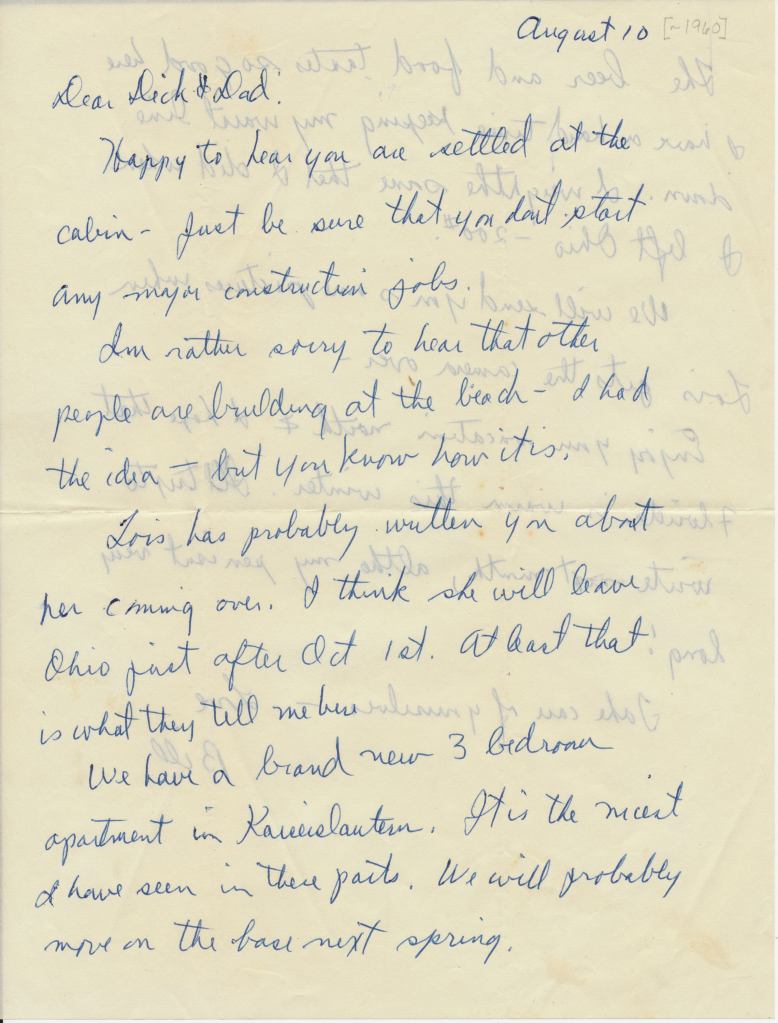 August 10 [~1960]
Dear Dick & Dad.
Happy to hear you are settled at the
cabin - Just be sure that you dont start
any major construction jobs.
Im rather sorry to hear that other
people are building at the beach - I had
the idea - but you know how it is.
Lois has probably written you about
her coming over. I think she will leave
Ohio just after Oct 1st. At least that
is what they tell me here
We have a brand new 3 bedroom
apartment in Kaiserslautern. It is the nicest
I have seen in these parts. We will probably
move on the base next spring.